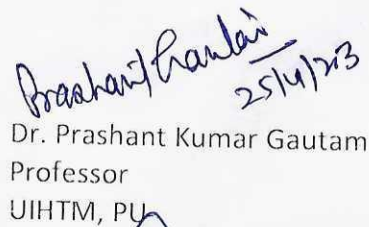 Prashant Gautam
25/4/2023
Dr. Prashant Kumar Gautam
Professor
UIHTM, PU